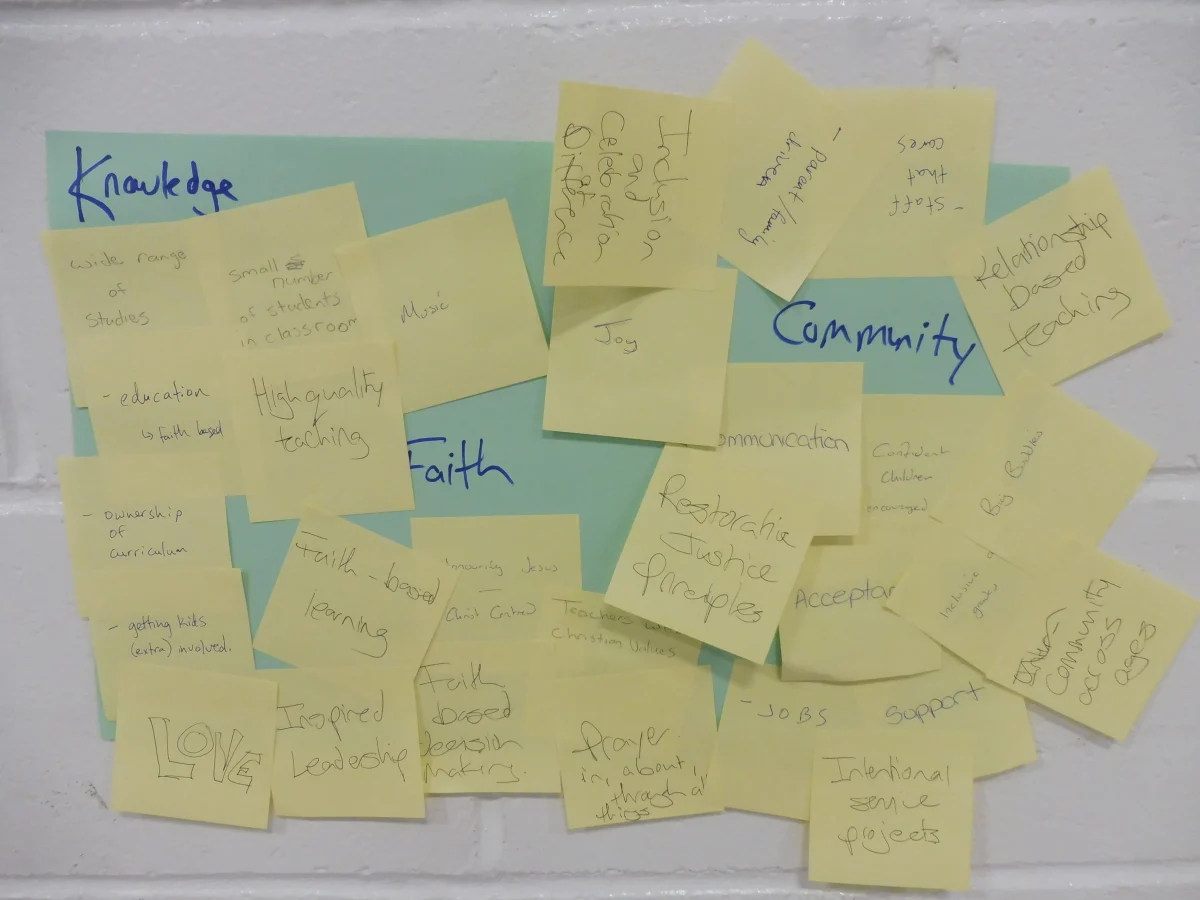 Knowledge
wide range
of
Studies
small
number
of students
in classroom
Music
- education
↳ faith based
High quality
teaching
- ownership
of
curriculum
- getting kids
(extra) involved.
LOVE
Faith
Faith-based
learning
Jesus
Christ Centred
Teachers with
Christian Values
Inspired
Leadership
Faith
based
Decision
making.
Prayer
in, about,
through
things
Inclusion
and
Celebration
of
Difference
- parent/family
driven
- staff
that
cares
Joy
Community
Relationship
based
teaching
ommunication
Restorative
Justice
Principles
Confident
Children
encouraged
Big Buddies
Acceptan
Inclusive
Community
across
ages
- JOBS
Support
Intentional
service
projects